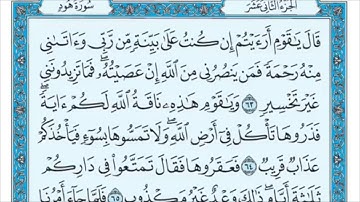 الجزء الثاني عشر سورة هود
قَالَ يَٰقَوْمِ أَرَءَيْتُمْ إِن كُنتُ عَلَىٰ بَيِّنَةٍ مِّن رَّبِّي وَءَاتَىٰنِي
مِنْهُ رَحْمَةً فَمَن يَنصُرُنِي مِنَ ٱللَّهِ إِنْ عَصَيْتُهُۥ فَمَا تَزِيدُونَنِي
غَيْرَ تَخْسِيرٍ ٦٣ وَيَٰقَوْمِ هَٰذِهِۦ نَاقَةُ ٱللَّهِ لَكُمْ ءَايَةً
فَذَرُوهَا تَأْكُلْ فِىٓ أَرْضِ ٱللَّهِ وَلَا تَمَسُّوهَا بِسُوٓءٍ فَيَأْخُذَكُمْ
عَذَابٌ قَرِيبٌ ٦٤ فَعَقَرُوهَا فَقَالَ تَمَتَّعُوا۟ فِى دَارِكُمْ
ثَلَٰثَةَ أَيَّامٍ ذَٰلِكَ وَعْدٌ غَيْرُ مَكْذُوبٍ ٦٥ فَلَمَّا جَآءَ أَمْرُنَا